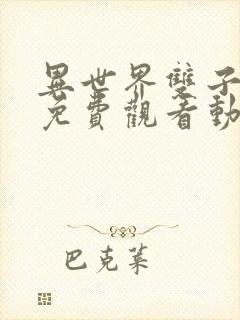 異世界雙子
免費觀看動
巴克萊